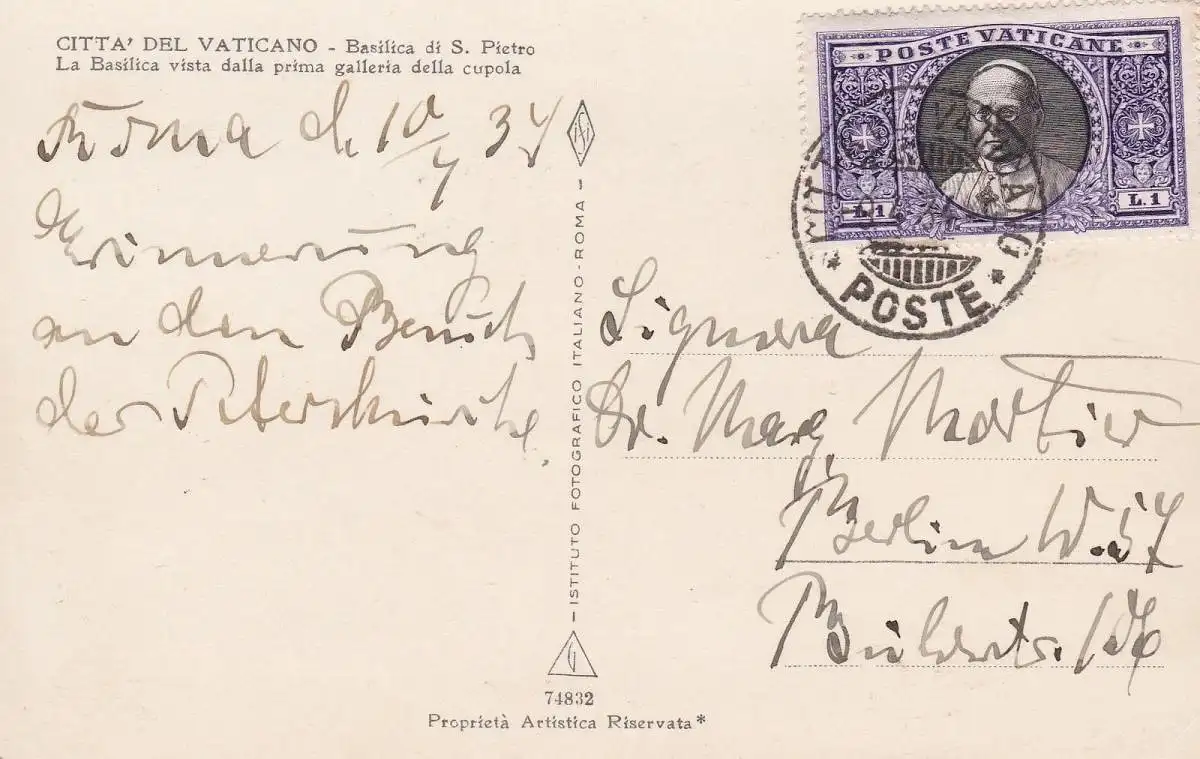 CITTA' DEL VATICANO - Basilica di S. Pietro
La Basilica vista dalla prima galleria della cupola
Roma d. 10/4 34
Erinnerung
an den Besuch
der Peterskirche.
POSTE VATICANE
L.1 L.1
POSTE
Signora
Dr. Marg.
Berlin W. 57
Bülowstr.
ISTITUTO FOTOGRAFICO ITALIANO - ROMA -
74832
Proprietà Artistica Riservata*